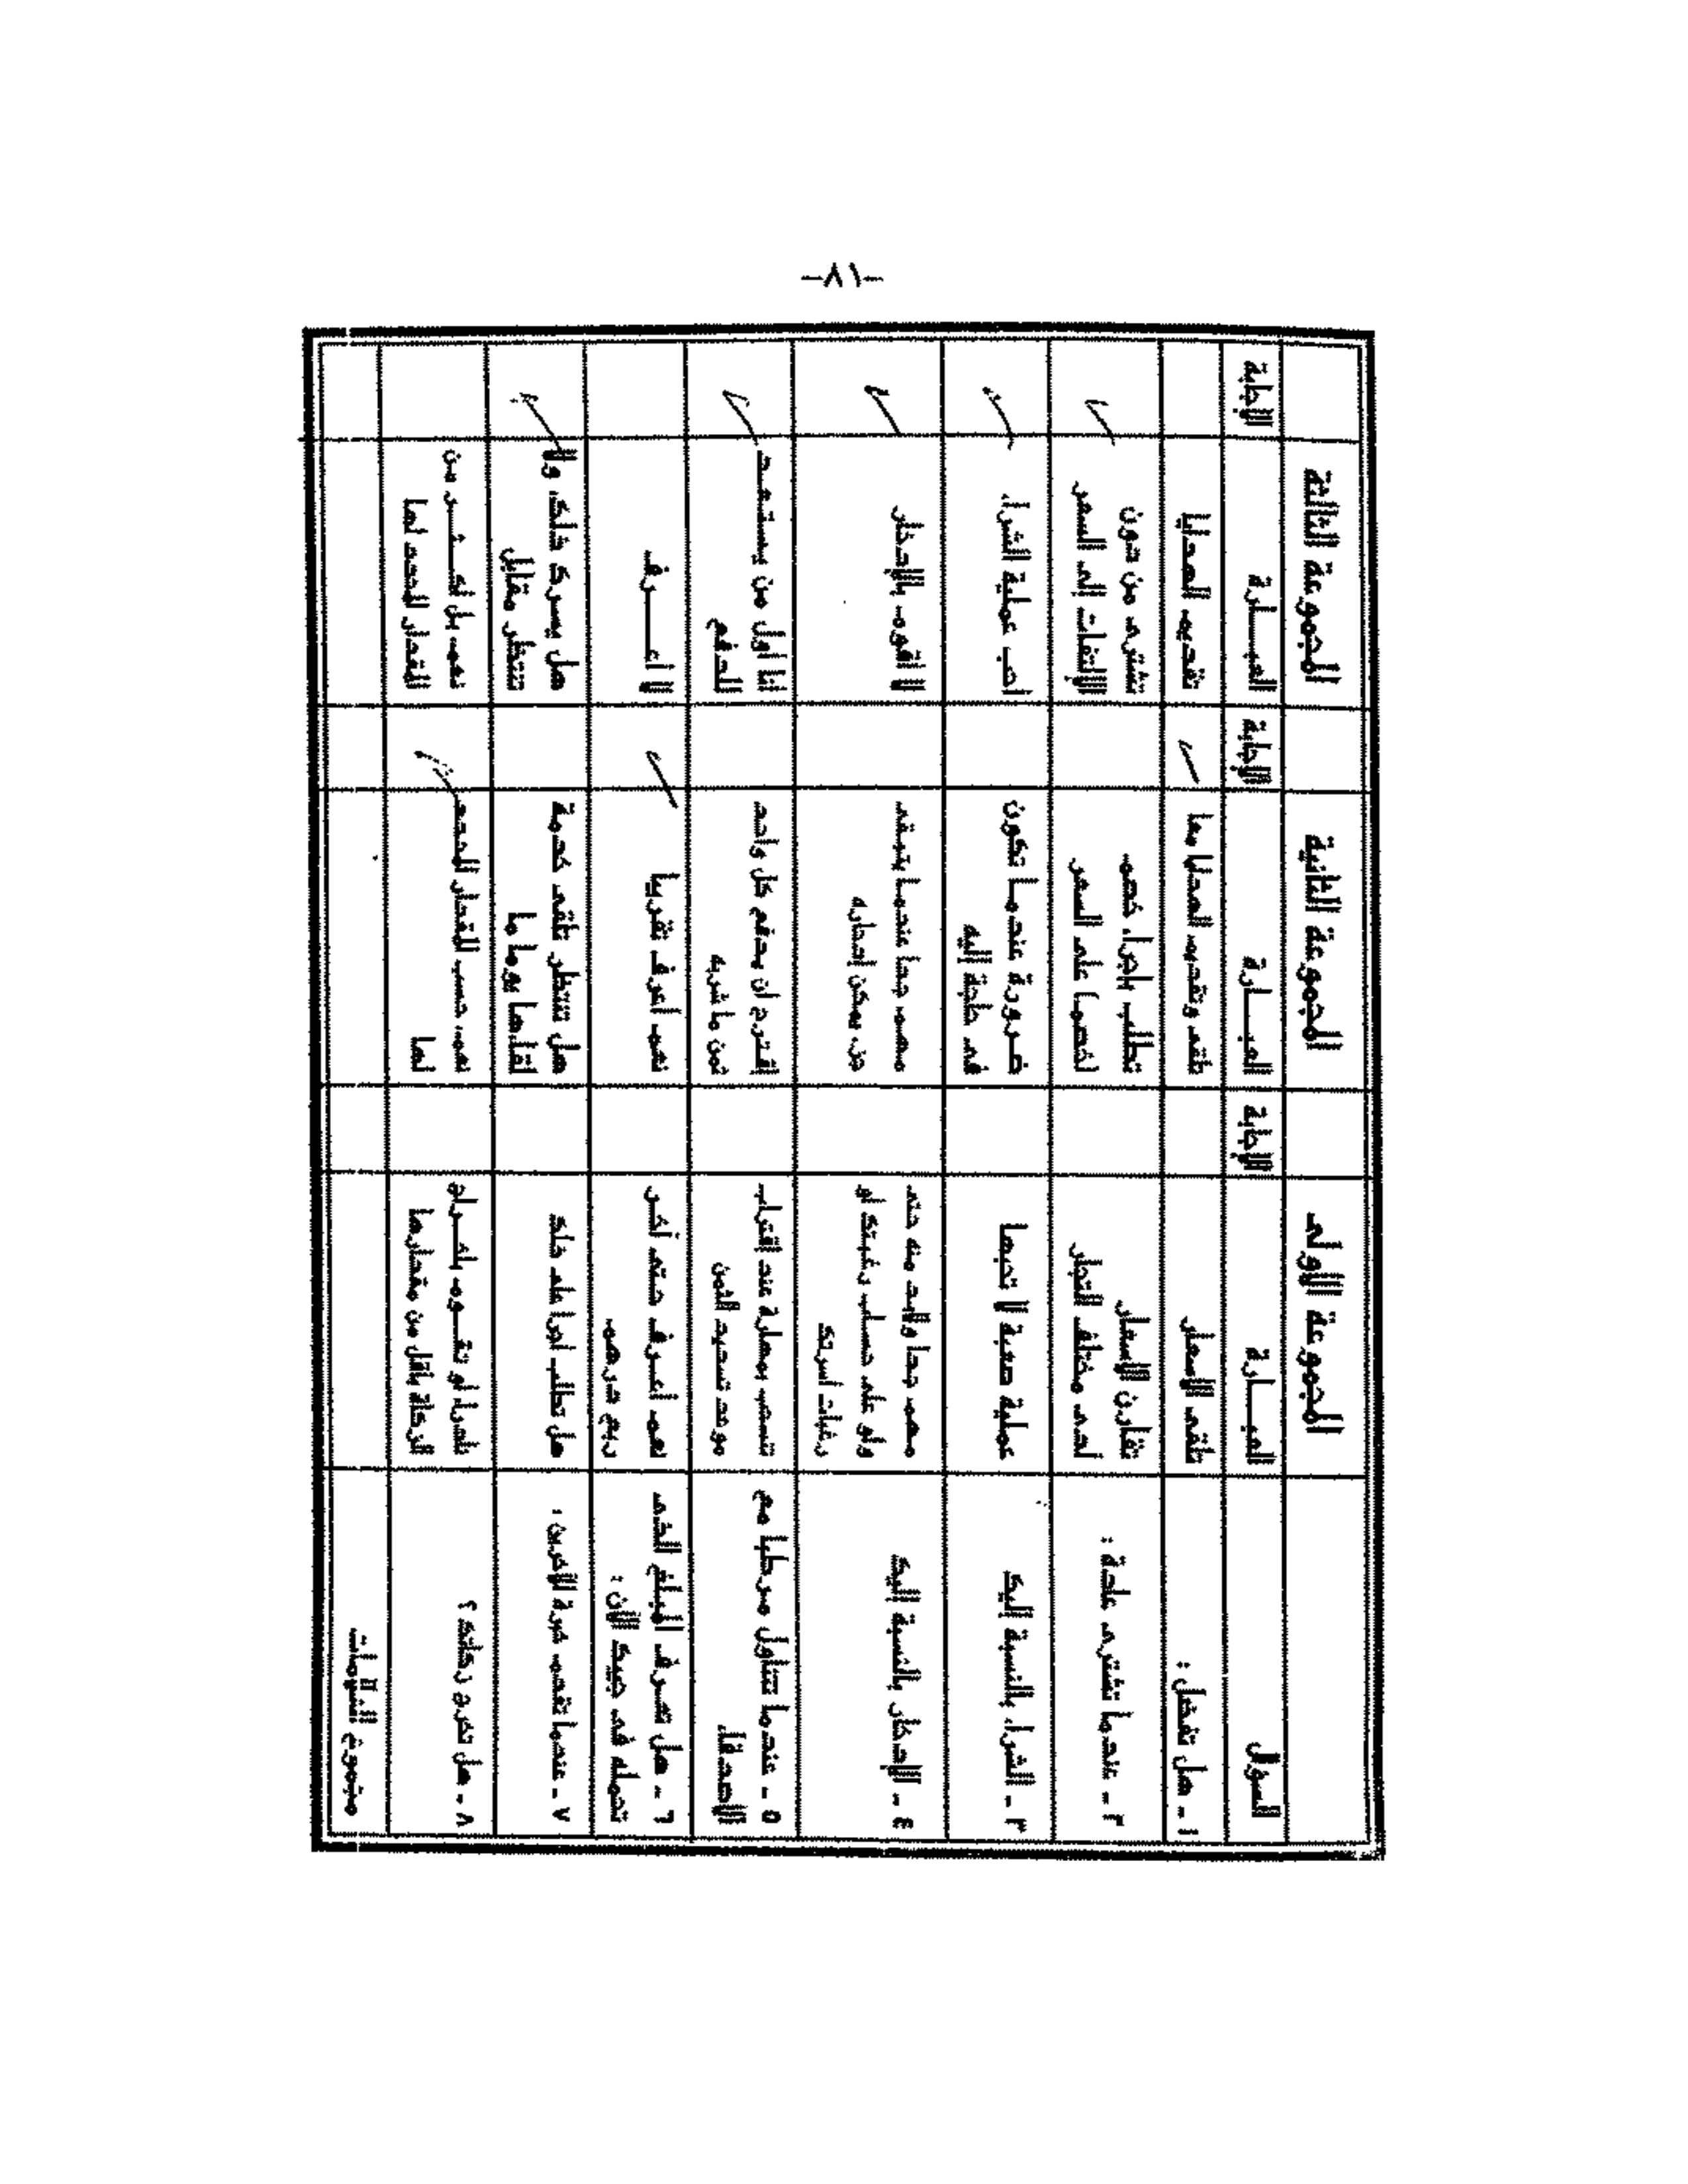 -٨١-
المجموعة الأولى
المجموعة الثانية
المجموعة الثالثة
السؤال
العبـــارة
الإجابة
العبـــارة
الإجابة
العبـــارة
الإجابة
١ - هل تفضل :
تلقى الأسعار
تلقى وتقديم الهدايا معا
تقديم الهدايا
٢ - عندما تشترى عادة :
تقارن الأسعار
لدى مختلف التجار
تطالب بإجراء خصم
لخصما على السعر
تشترى من دون
الإلتفات إلى السعر
٣ - الشراء بالنسبة إليك
عملية صعبة لا تحبها
ضرورة عندما تكون
فى حاجة إليه
أحب عملية الشراء
٤ - الإدخار بالنسبة إليك
مهم جدا ولابد منه حتى
ولو على حساب رغبتك أو
رغبات أسرتك
مهم جدا عندما يتبقى
جزء يمكن إدخاره
لا أقوم بالإدخار
٥ - عندما تتناول مرطبا مع
الأصدقاء
تنسحب بمهارة عند إقتراب
موعد تسديد الثمن
إقترح أن يدفع كل واحد
ثمن ما شربه
أنا أول من يستعد
للدفع
٦ - هل تعرف المبلغ الذى
تحمله فى جيبك الآن :
نعم أعرف حتى آخر
ربع درهم
نعم أعرف تقريبا
لا أعـــرف
٧ - عندما تقدم خدمة للآخرين :
هل تطلب أجرا على ذلك
هل تنتظر تلقى خدمة
لقاءها يوما ما
هل يسرك ذلك ولا
تنتظر مقابل
٨ - هل تخرج زكاتك ؟
نادرا، أو تقـــوم بإخـــراج
الزكاة بأقل من مقدارها
نعم، حسب المقدار المحدد
لها
نعم، بل أكـــثـــر من
المقدار المحدد لها
مجموع العلامات